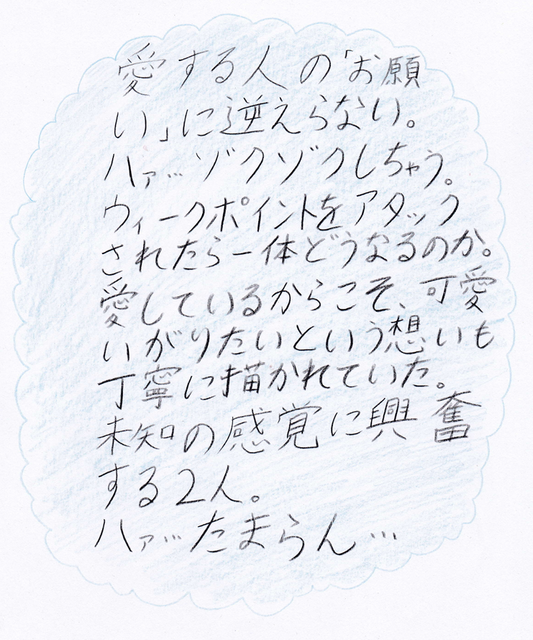 愛する人の「お願
い」に逆えらない。
ハァ…ゾクゾクしちゃう。
ウィークポイントをアタック
されたら一体どうなるのか。
愛しているからこそ、可愛
いがりたいという想いも
丁寧に描かれていた。
未知の感覚に興奮
する2人。
ハァ…たまらん…